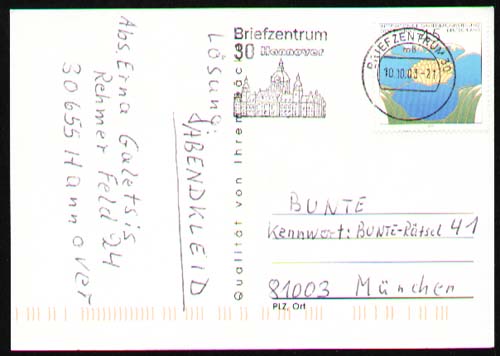 Abs Erna Galetsis
Rehmer Feld 24
30655 Hannover
Lösung:
ABENDKLEID
Qualität von Ihrem Bäck
Briefzentrum
30 Hannover
BRIEFZENTRUM 30
mB
10.10.03-21
45
DEUTSCHLAND
BUNTE
Kennwort: BUNTE-Rätsel 41
81003 München
PLZ, Ort